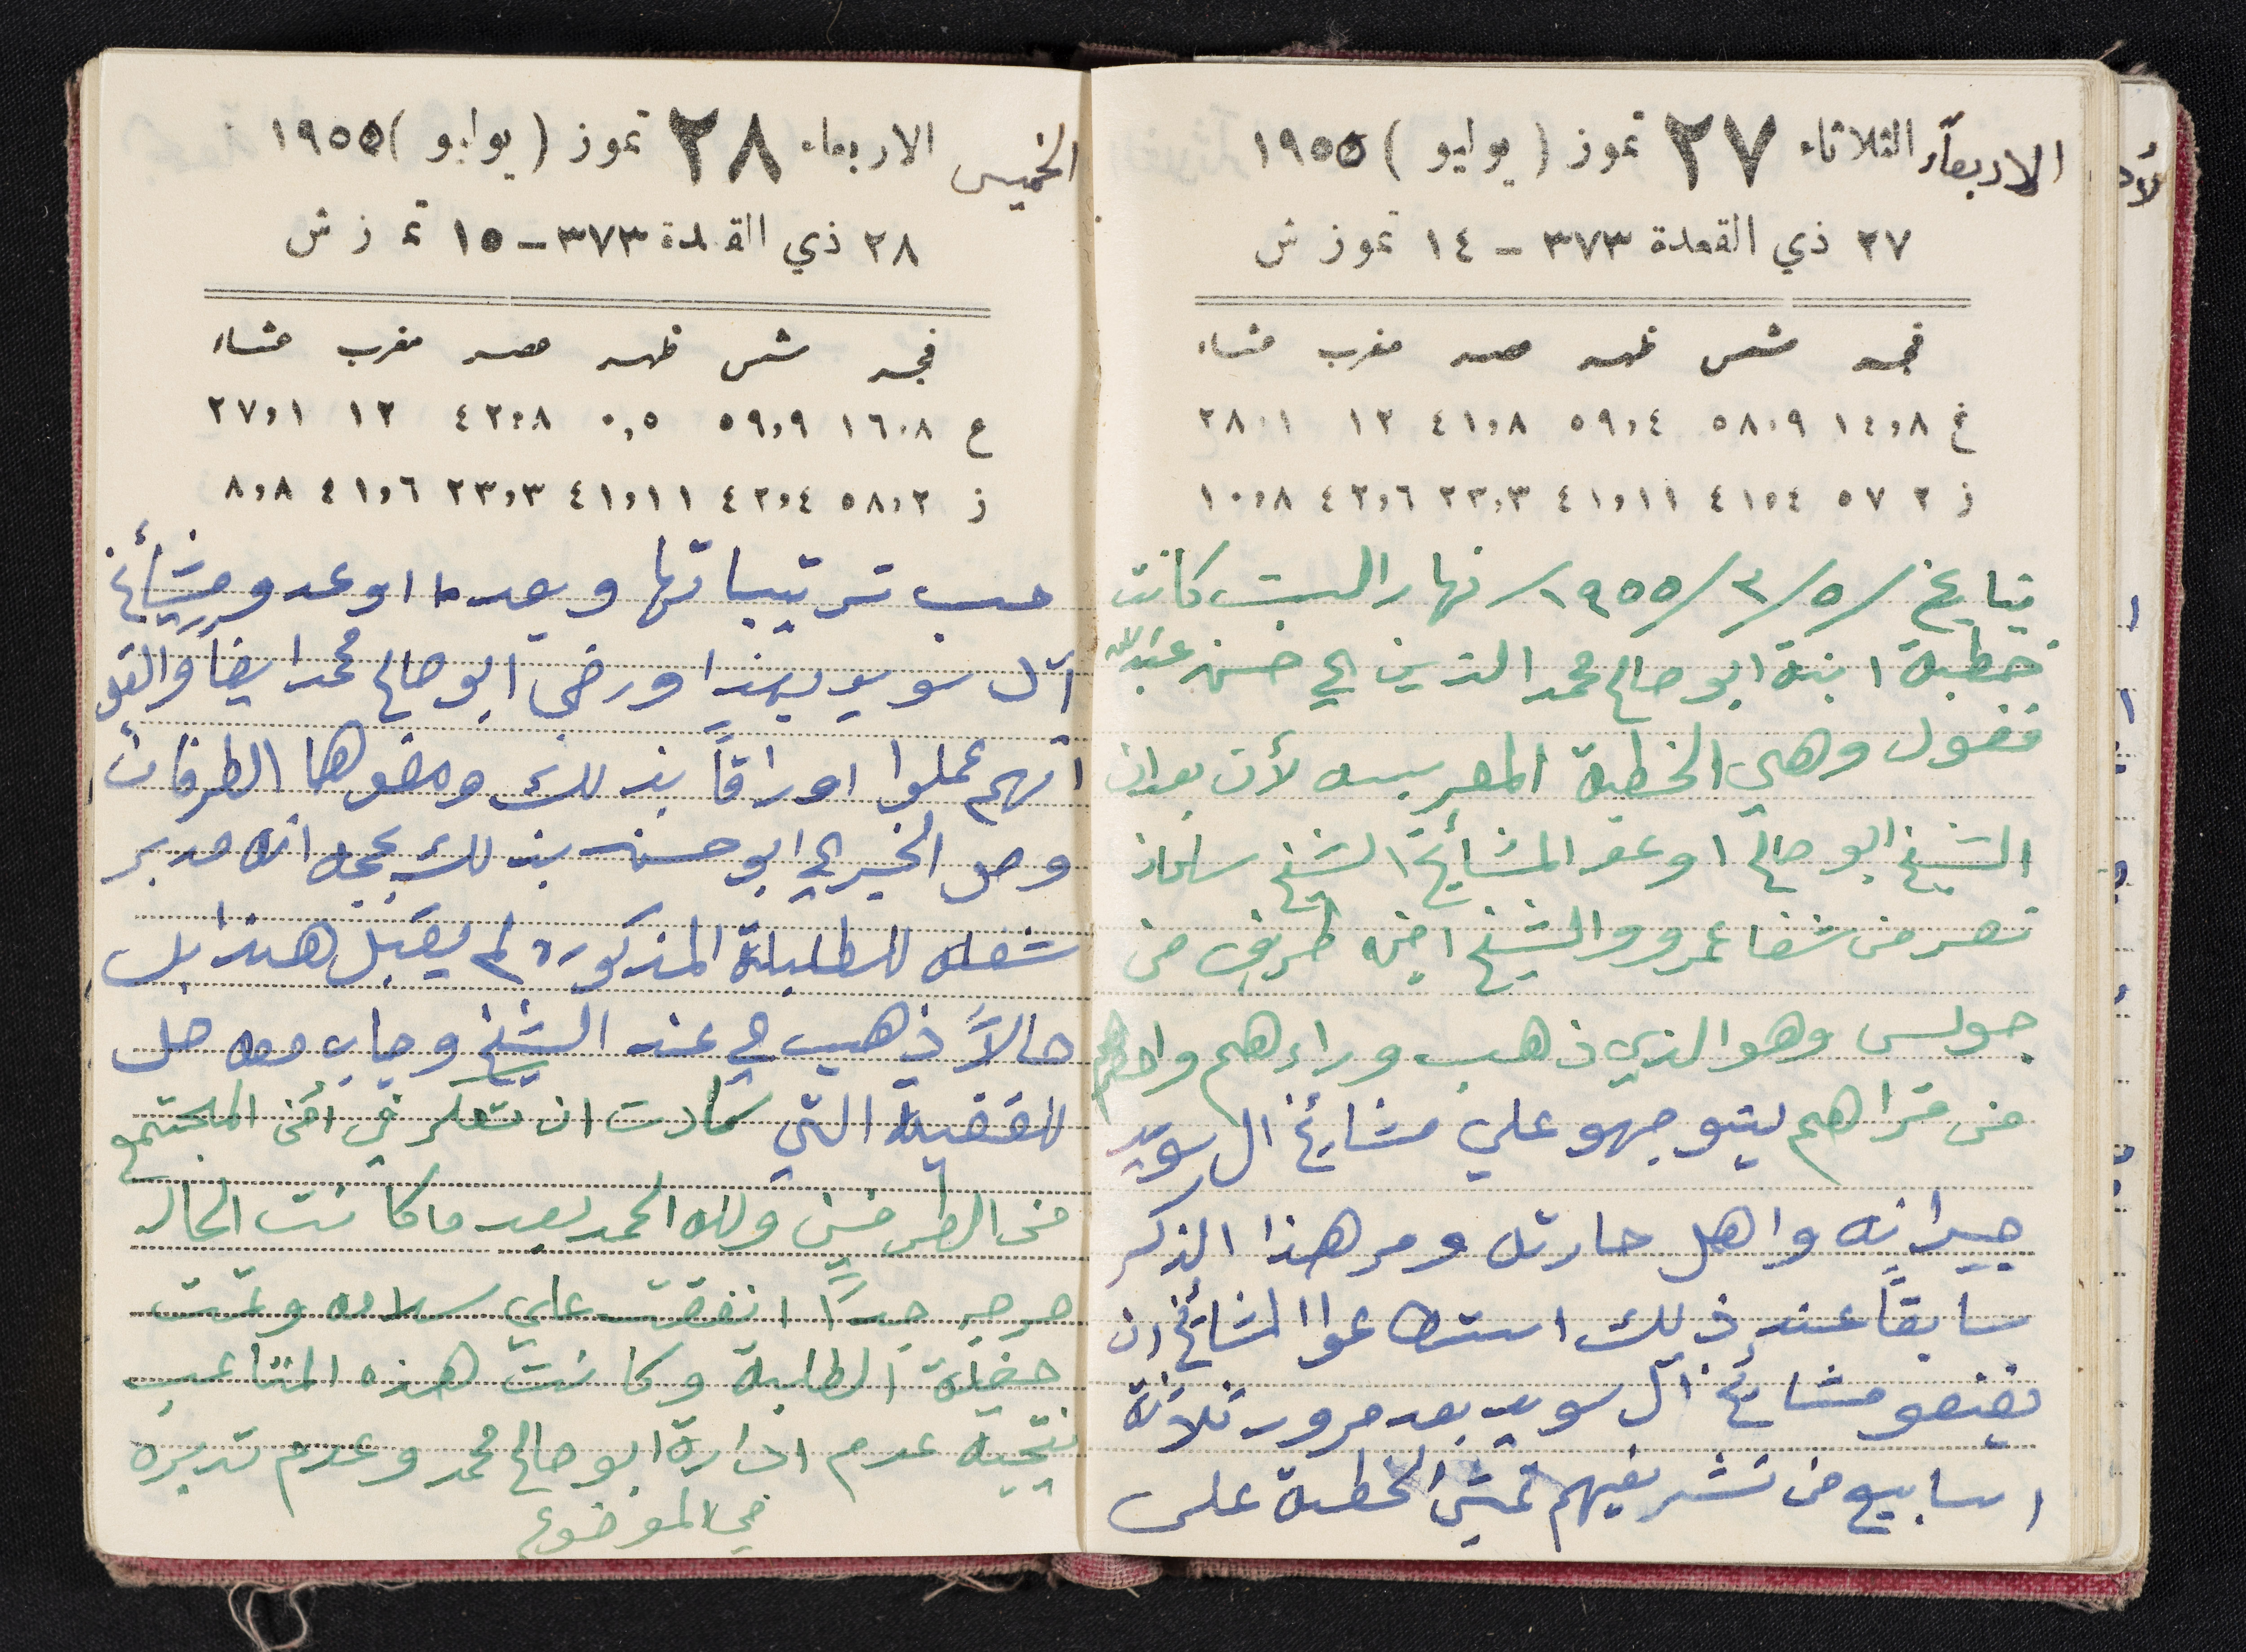 الاربعاء الثلاثاء ٢٧ تموز (يوليو) ١٩٥٥
٢٧ ذي القعدة ٣٧٣ - ١٤ تموز ش
فجر شمس ظهر عصر مغرب عشاء
غ ١٤،٨ ٥٨،٩ ٥٩،٤ ٤١،٨ ١٢ ٢٨،١
ز ٢ ٥٧ ٤١،٤ ٤١،١١ ٢٣،٣ ٤٢،٦ ١٠،٨
بتايخ /٥/٣/١٩٥٥ نهار السبت كانت
خطبة ابنة ابو صالح محمد الذين الي حسن عبدالله
فضول وهي الخطبة لأن بعد ان
الشيخ ابو صالح اوعد المشائخ الشيخ سلمان
نصر من شفاعمرو والشيخ امين طريف من
جولس وهو الذي ذهب وراءهم واحضرهم
من قراهم ليتوجهو علي مشائخ ال سويد
جيرانه واهل حارته ومر هذا الذكر
سابقاً عند ذلك استطاعوا المشائخ ان
يقنعو مشائخ آل سويد بعد مرور ثلاثة
اسابيع من تشريفهم تمشي الخطبة على
الخميس الاربعاء ٢٨ تموز (يوليو) ١٩٥٥
٢٨ ذي القعدة ٣٧٣ - ١٥ تموز ش
فجر شمس ظهر عصر مغرب عشاء
ع ١٦،٨ ٥٩،٩ ٠،٥ ٤٢،٨ ١٢ ٢٧،١
ز ٥٨،٢ ٤٢،٤ ٤١،١١ ٢٣،٣ ٤١،٦ ٨،٨
حسب ترتيباتها وبعد ما اوعدو مشائخ
آل سويد بهذا ورضي ابو صالح محمد ايضاً
انهم عملوا اوراقاً بذلك ومضوها الطرفان
وصل الخبر الي ابو حسن بذلك بحجه انه مدبر
شغله للطلبة المذكوره لم يقبل هذا بل
حالاً ذهب الي عند الشيخ وجاب معه حل
للقضية التي كادت ان تعكر في أمن المجتمع
من الطرفين ولله الحمد بعد ما كانت الحاله
حرجه جداً انفقت علي سلامه وتمت
حفلة الطلبة وكانت هذه المتاعب
نتيجة عدم ادارة ابو صالح محمد وعدم تدبيره
في الموضوع